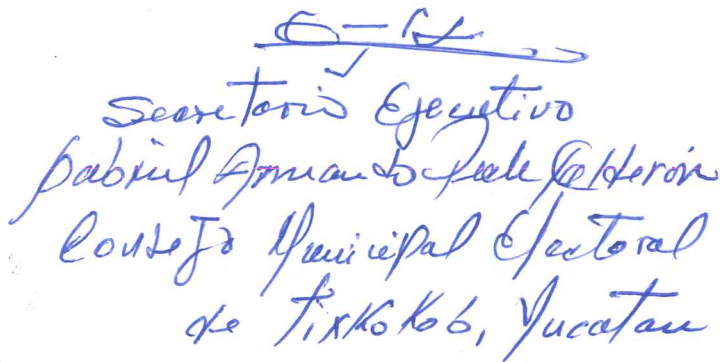 Secretario Ejecutivo
Gabriel Armando Calderón
Consejo Municipal Electoral
de Tixkokob, Yucatan